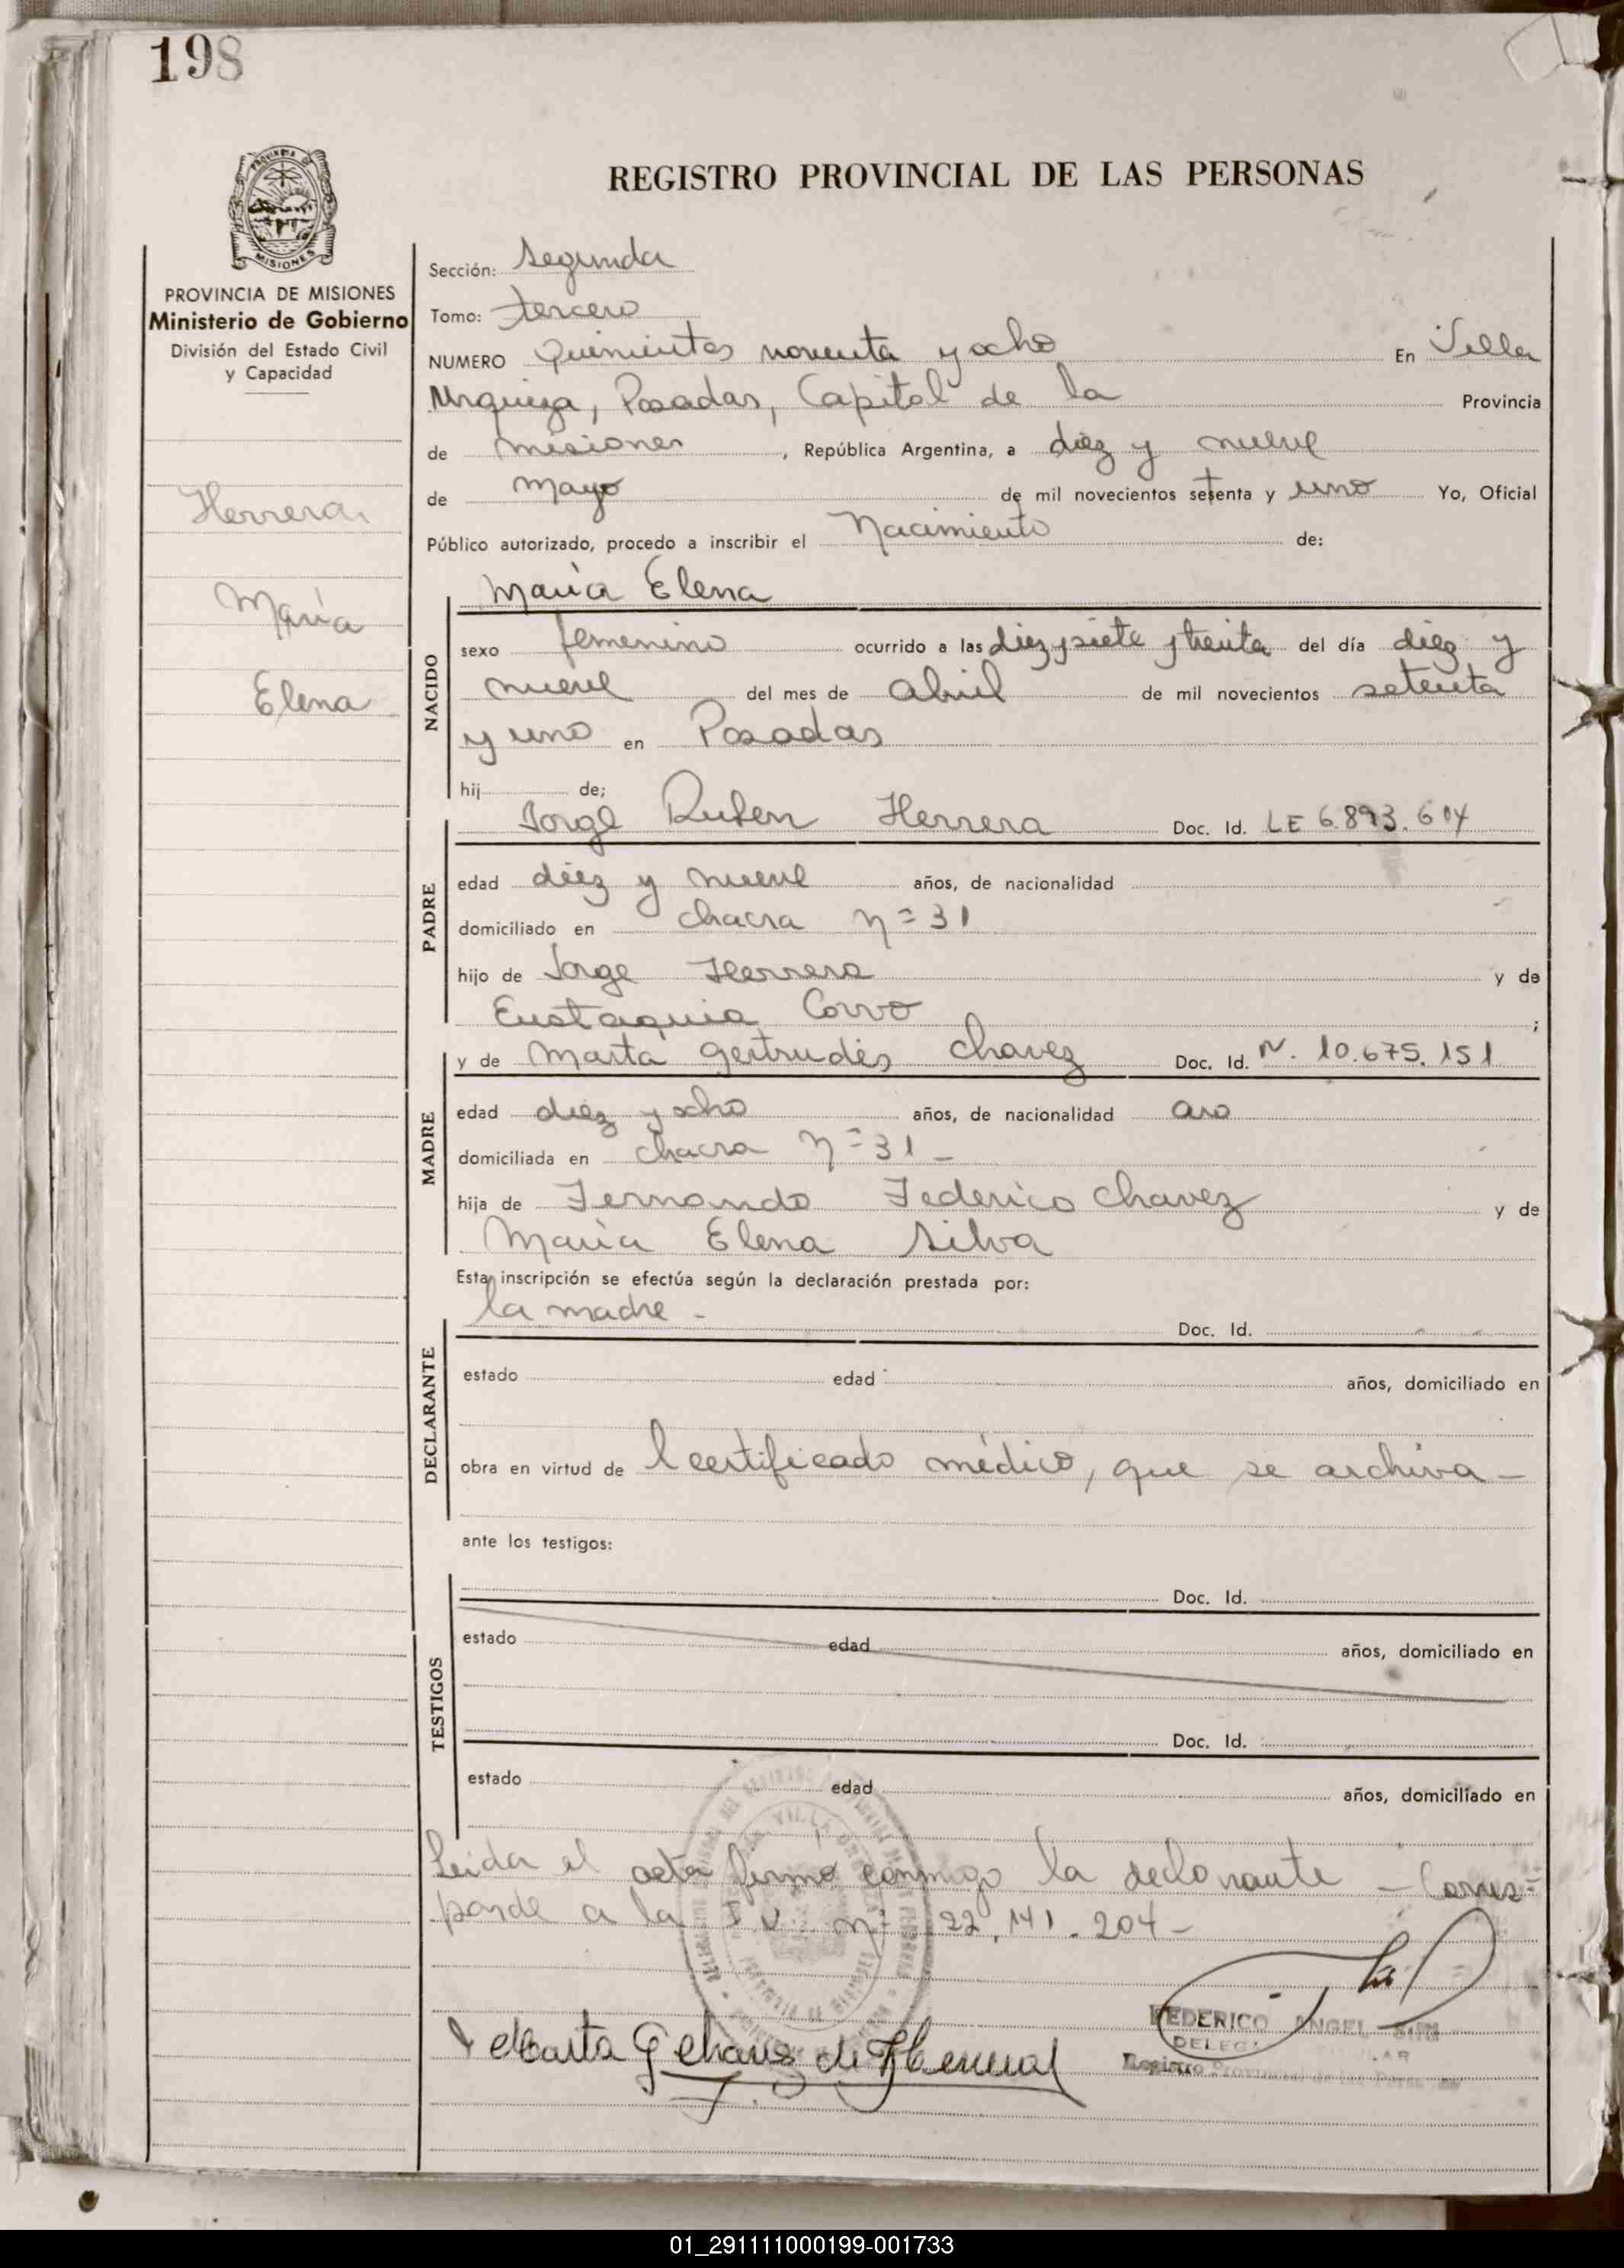 198
REGISTRO PROVINCIAL DE LAS PERSONAS
PROVINCIA DE MISIONES
Ministerio de Gobierno
División del Estado Civil
y Capacidad
Herrera
María
Elena
Sección: Segunda
Tomo: tercero
NUMERO Quinientos noventa y ocho En Villa
Urquiza, Posadas, Capital de la Provincia
de Misiones, República Argentina, a diez y nueve
de Mayo de mil novecientos setenta y uno Yo, Oficial
Público autorizado, procedo a inscribir el Nacimiento de:
NACIDO
María Elena
sexo femenino ocurrido a las diez y siete y treinta del día diez y
nueve del mes de abril de mil novecientos setenta
y uno en Posadas
hij de;
PADRE
Jorge Ruben Herrera Doc. Id. LE 6.893.604
edad diez y nueve años, de nacionalidad
domiciliado en chacra nº 31
hijo de Jorge Herrera y de
Eustaquia Corvo ;
MADRE
y de Marta Gertrudis Chavez Doc. Id. N. 10.675.151
edad diez y ocho años, de nacionalidad
domiciliada en chacra nº 31 -
hija de Fernando Federico Chavez y de
María Elena Silva
Esta inscripción se efectúa según la declaración prestada por:
DECLARANTE
la madre - Doc. Id.
estado edad años, domiciliado en
obra en virtud de l certificado médico, que se archiva -
ante los testigos:
TESTIGOS
Doc. Id.
estado edad años, domiciliado en
Doc. Id.
estado edad años, domiciliado en
Leida el acta firmó conmigo la declarante - Corres=
ponde a la I U nº 22.141.204 -
Marta G Chavez de Herrera
FEDERICO ANGEL
DELEG
Registro Provincial de las Personas
01_291111000199-001733